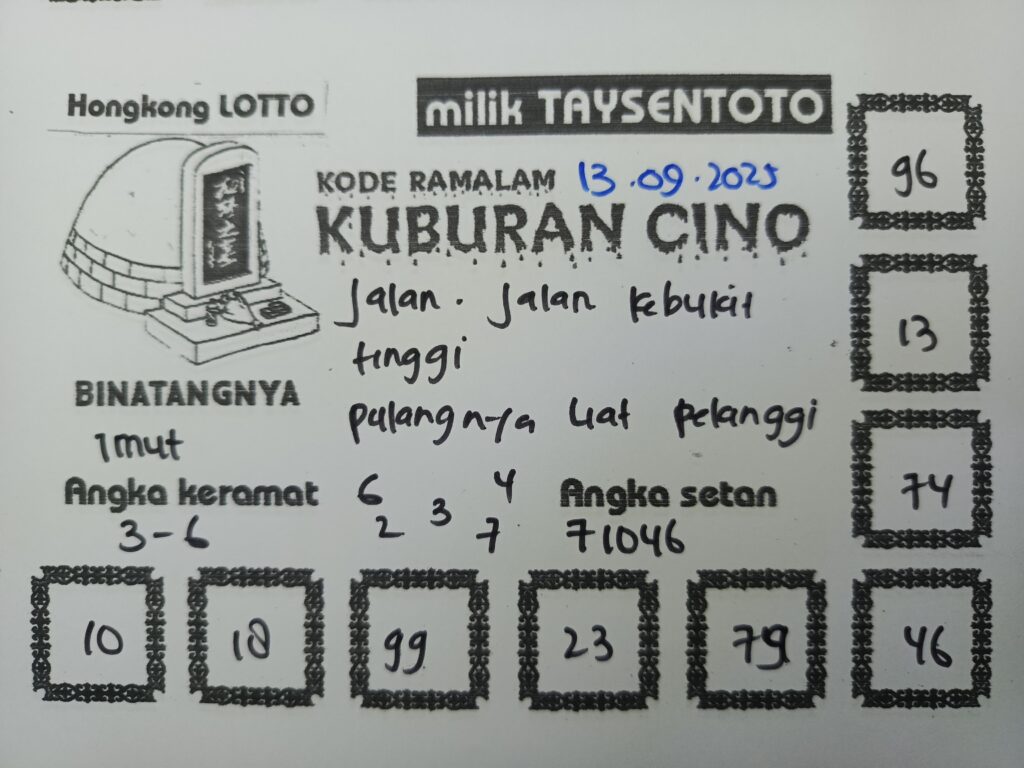 Hongkong LOTTO
milik TAYSENTOTO
KODE RAMALAM 13.09.2025
KUBURAN CINO
Jalan. Jalan kebukit
tinggi
pulangnya liat pelanggi
BINATANGNYA
1mut
Angka keramat
3-6
6 4
3
2 7
Angka setan
71046
96
13
74
10 18 99 23 79 46